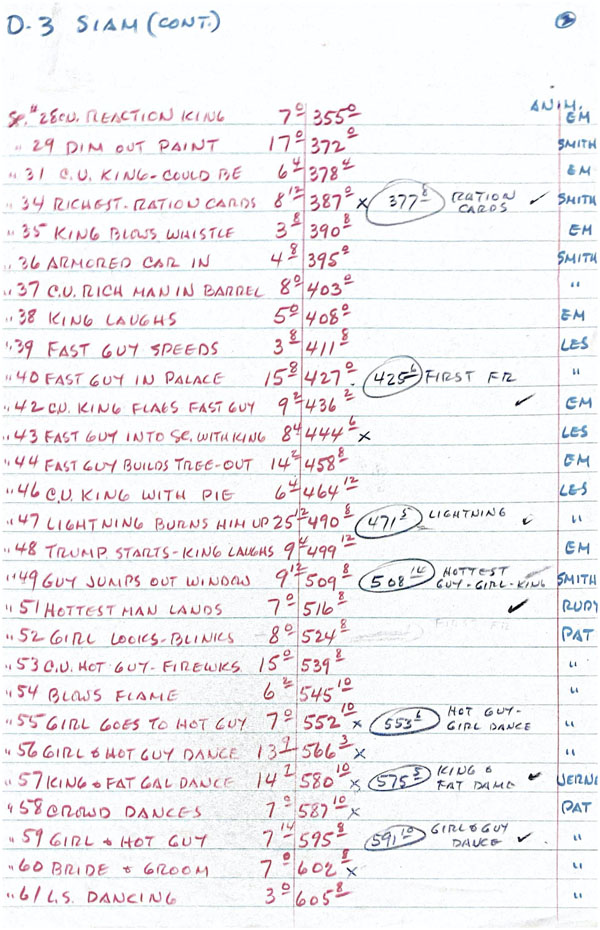 D-3 SIAM (CONT.) 3
ANIM.
Sc. #28 C.U. REACTION KING 7⁰ 355⁰ EM
" 29 DIM OUT PAINT 17⁰ 372⁰ SMITH
" 31 C.U. KING-COULD BE 6⁴ 378⁴ EM
" 34 RICHEST-RATION CARDS 8¹² 387⁰ x 377⁸ RATION CARDS ✓ SMITH
" 35 KING BLOWS WHISTLE 3⁸ 390⁸ EM
" 36 ARMORED CAR IN 4⁸ 395⁰ SMITH
" 37 C.U. RICH MAN IN BARREL 8⁰ 403⁰ "
" 38 KING LAUGHS 5⁰ 408⁰ EM
" 39 FAST GUY SPEEDS 3⁸ 411⁸ LES
" 40 FAST GUY IN PALACE 15⁸ 427⁰ 425⁶ FIRST FR "
" 42 C.U. KING FLAGS FAST GUY 9² 436² ✓ EM
" 43 FAST GUY INTO SC. WITH KING 8⁴ 444⁶ x LES
" 44 FAST GUY BUILDS TREE-OUT 14² 458⁸ EM
" 46 C.U. KING WITH PIE 6⁴ 464¹² LES
" 47 LIGHTNING BURNS HIM UP 25¹² 490⁸ 471⁵ LIGHTNING ✓ "
" 48 TRUMP. STARTS-KING LAUGHS 9⁴ 499¹² EM
" 49 GUY JUMPS OUT WINDOW 9¹² 509⁸ 508¹⁴ HOTTEST GUY-GIRL-KING SMITH
" 51 HOTTEST MAN LANDS 7⁰ 516⁸ ✓ RUDY
" 52 GIRL LOOKS-BLINKS 8⁰ 524⁸ FIRST FR PAT
" 53 C.U. HOT GUY-FIREWKS. 15⁰ 539⁸ "
" 54 BLOWS FLAME 6² 545¹⁰ "
" 55 GIRL GOES TO HOT GUY 7⁰ 552¹⁰ x 553⁶ HOT GUY-GIRL DANCE "
" 56 GIRL & HOT GUY DANCE 13⁹ 566³ x "
" 57 KING & FAT GAL DANCE 14² 580¹⁰ x 575⁵ KING & FAT DAME ✓ VERNE
" 58 CROWD DANCES 7⁰ 587¹⁰ x PAT
" 59 GIRL & HOT GUY 7¹⁴ 595⁸ 591¹⁰ GIRL & GUY DANCE ✓ "
" 60 BRIDE & GROOM 7⁰ 602⁸ x "
" 61 L.S. DANCING 3⁰ 605⁸ "